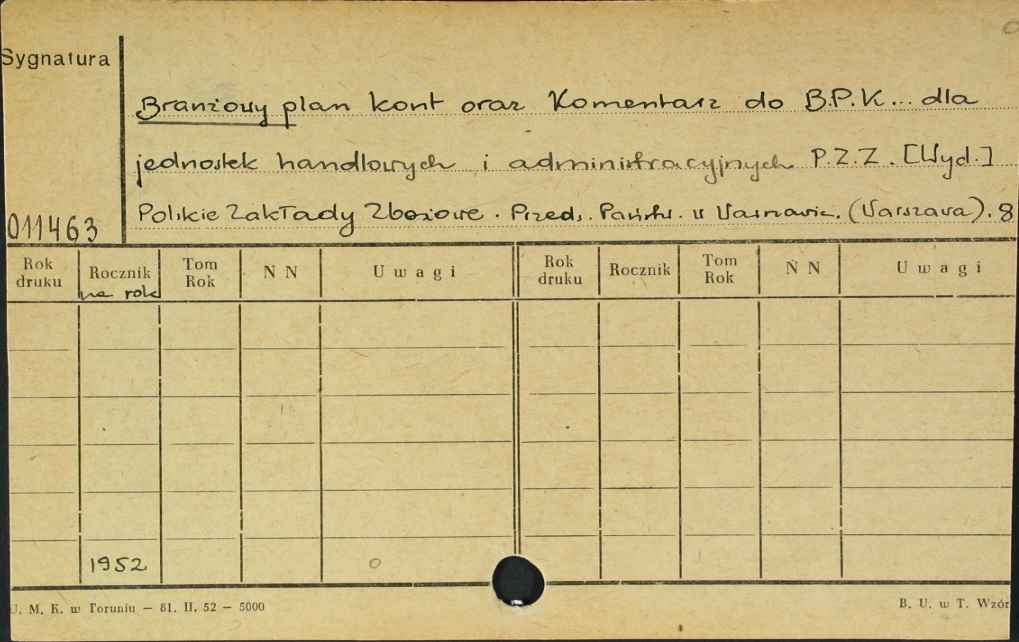 Sygnatura
Branżowy plan kont oraz Komentarz do B.P.K... dla
jednostek handlowych i administracyjnych P.Z.Z. [Wyd.]
Polskie Zakłady Zbożowe. Przeds. Państw. w Warszawie. (Warszawa). 8
011463
Rok druku Rocznik Tom Rok N N Uwagi Rok druku Rocznik Tom Rok N N Uwagi
na rok
1952
U. M. K. w Toruniu — 81. II. 52 — 5000 B. U. w T. Wzór